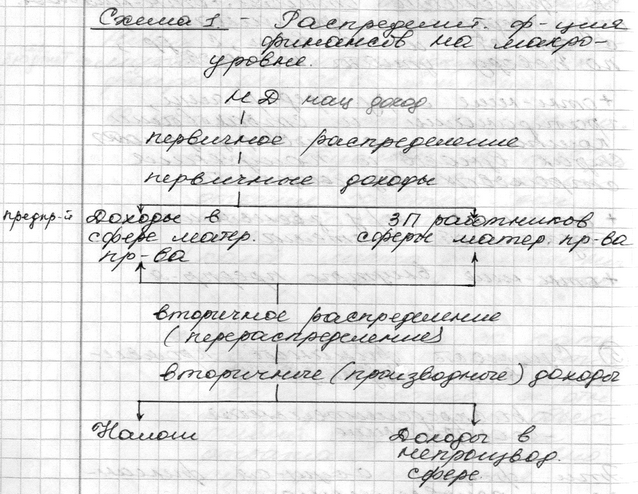 Схема 1. - Распределит. ф-ция
финансов на макро-
уровне.
НД нац доход.
первичное распределение
первичные доходы
предпр-й Доходы в
сфере матер.
пр-ва
ЗП работников
сферы матер. пр-ва
вторичное распределение
(перераспределение)
вторичные (производные) доходы
Налоги
Доходы в
непроизвод.
сфере.